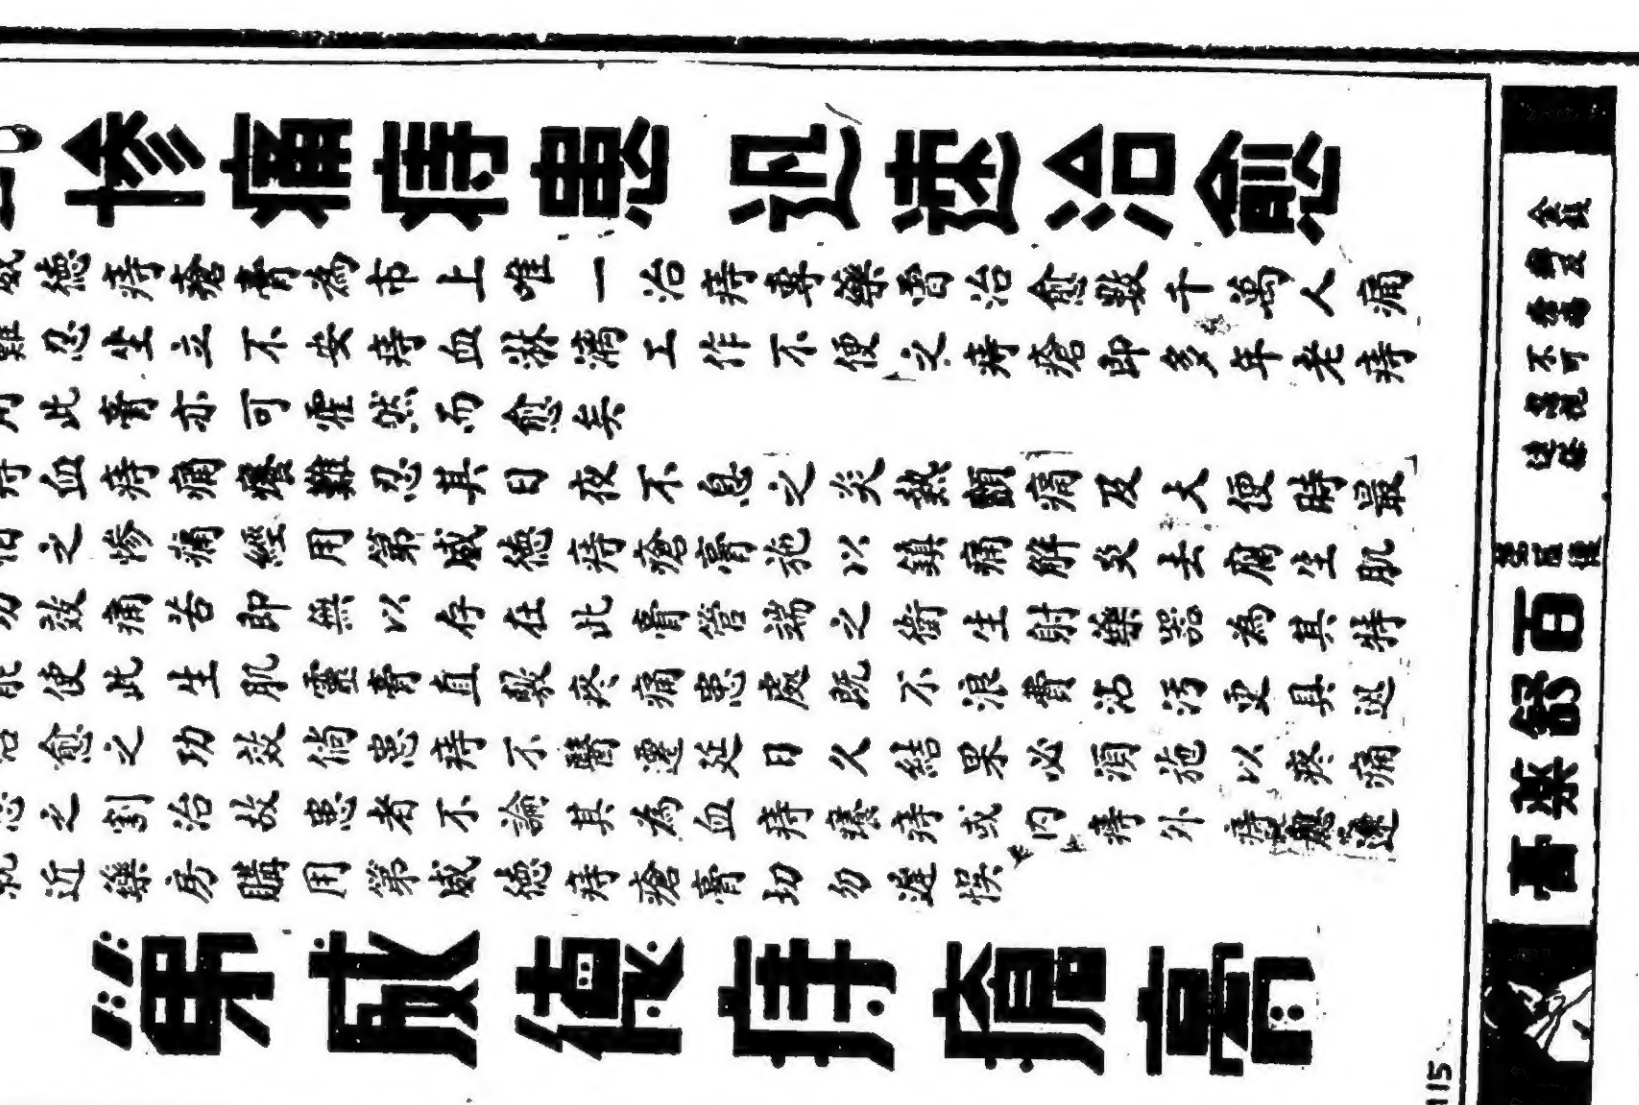 慘痛痔患 迅速治愈
威德痔瘡膏為市上唯一治痔專藥曾治愈數千萬人痛
難忍坐立不安痔血淋漓工作不便之痔瘡即多年老痔
用此膏亦可霍然而愈矣
痔血痔痛癢難忍其日夜不息之炎熱顫痛及大便時最
怕之慘痛經用第威德痔瘡膏施以鎮痛解炎去腐生肌
功效痛苦即無以存在此膏管端之衛生射藥器為其特
能使此生肌靈膏直敷疼痛患處既不浪費沾污更具迅
治愈之功效倘患痔不醫遷延日久結果必須施以疼痛
忍之割治故患者不論其為血痔癢痔或內痔外痔應速
就近藥房購用第威德痔瘡膏切勿遲悮
第威德痔瘡膏
115
不可
百舒藥膏